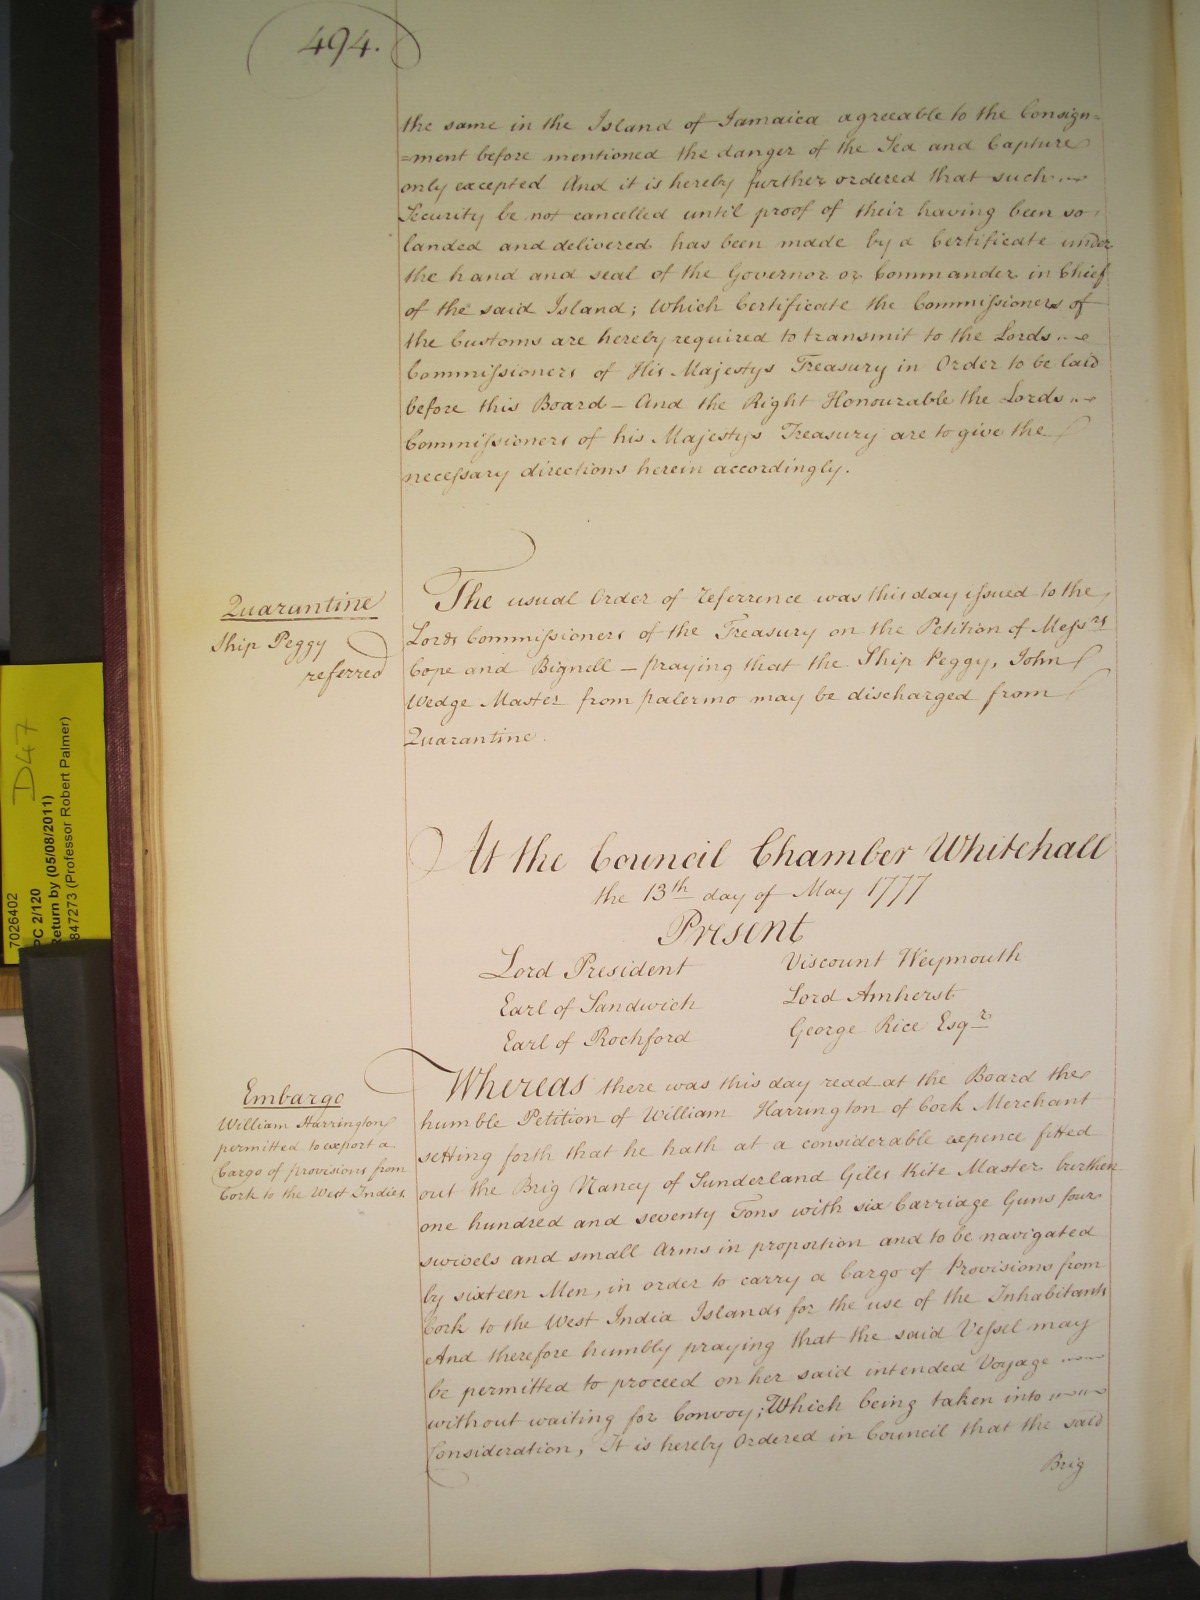 494.
the same in the Island of Jamaica agreeable to the Consign=
=ment before mentioned the danger of the Sea and Capture
only excepted And it is hereby further ordered that such
Security be not cancelled until proof of their having been so
landed and delivered has been made by a Certificate under
the hand and seal of the Governor or Commander in Chief
of the said Island; Which Certificate the Commissioners of
the Customs are hereby required to transmit to the Lords
Commissioners of His Majestys Treasury in Order to be laid
before this Board — And the Right Honourable the Lords
Commissioners of his Majestys Treasury are to give the
necessary directions herein accordingly.
Quarantine
Ship Peggy
referred
The usual Order of referrence was this day issued to the
Lords Commissioners of the Treasury on the Petition of Messrs
Cope and Bignell — praying that the Ship Peggy, John
Wedge Master from palermo may be discharged from
Quarantine.
At the Council Chamber Whitehall
the 13th day of May 1777
Present
Lord President Viscount Weymouth
Earl of Sandwich Lord Amherst
Earl of Rochford George Rice Esqr
Embargo
William Harrington
permitted to export a
Cargo of provisions from
Cork to the West Indies
Whereas there was this day read at the Board the
humble Petition of William Harrington of Cork Merchant
setting forth that he hath at a considerable expence fitted
out the Brig Nancy of Sunderland Giles Kite Master burthen
one hundred and seventy Tons with six Carriage Guns four
swivels and small Arms in proportion and to be navigated
by sixteen Men, in order to carry a Cargo of Provisions from
Cork to the West India Islands for the use of the Inhabitants
And therefore humbly praying that the said Vessel may
be permitted to proceed on her said intended Voyage
without waiting for Convoy; Which being taken into
Consideration, It is hereby Ordered in Council that the said
Brig
7026402
D47
PC 2/120
Return by (05/08/2011)
847273 (Professor Robert Palmer)